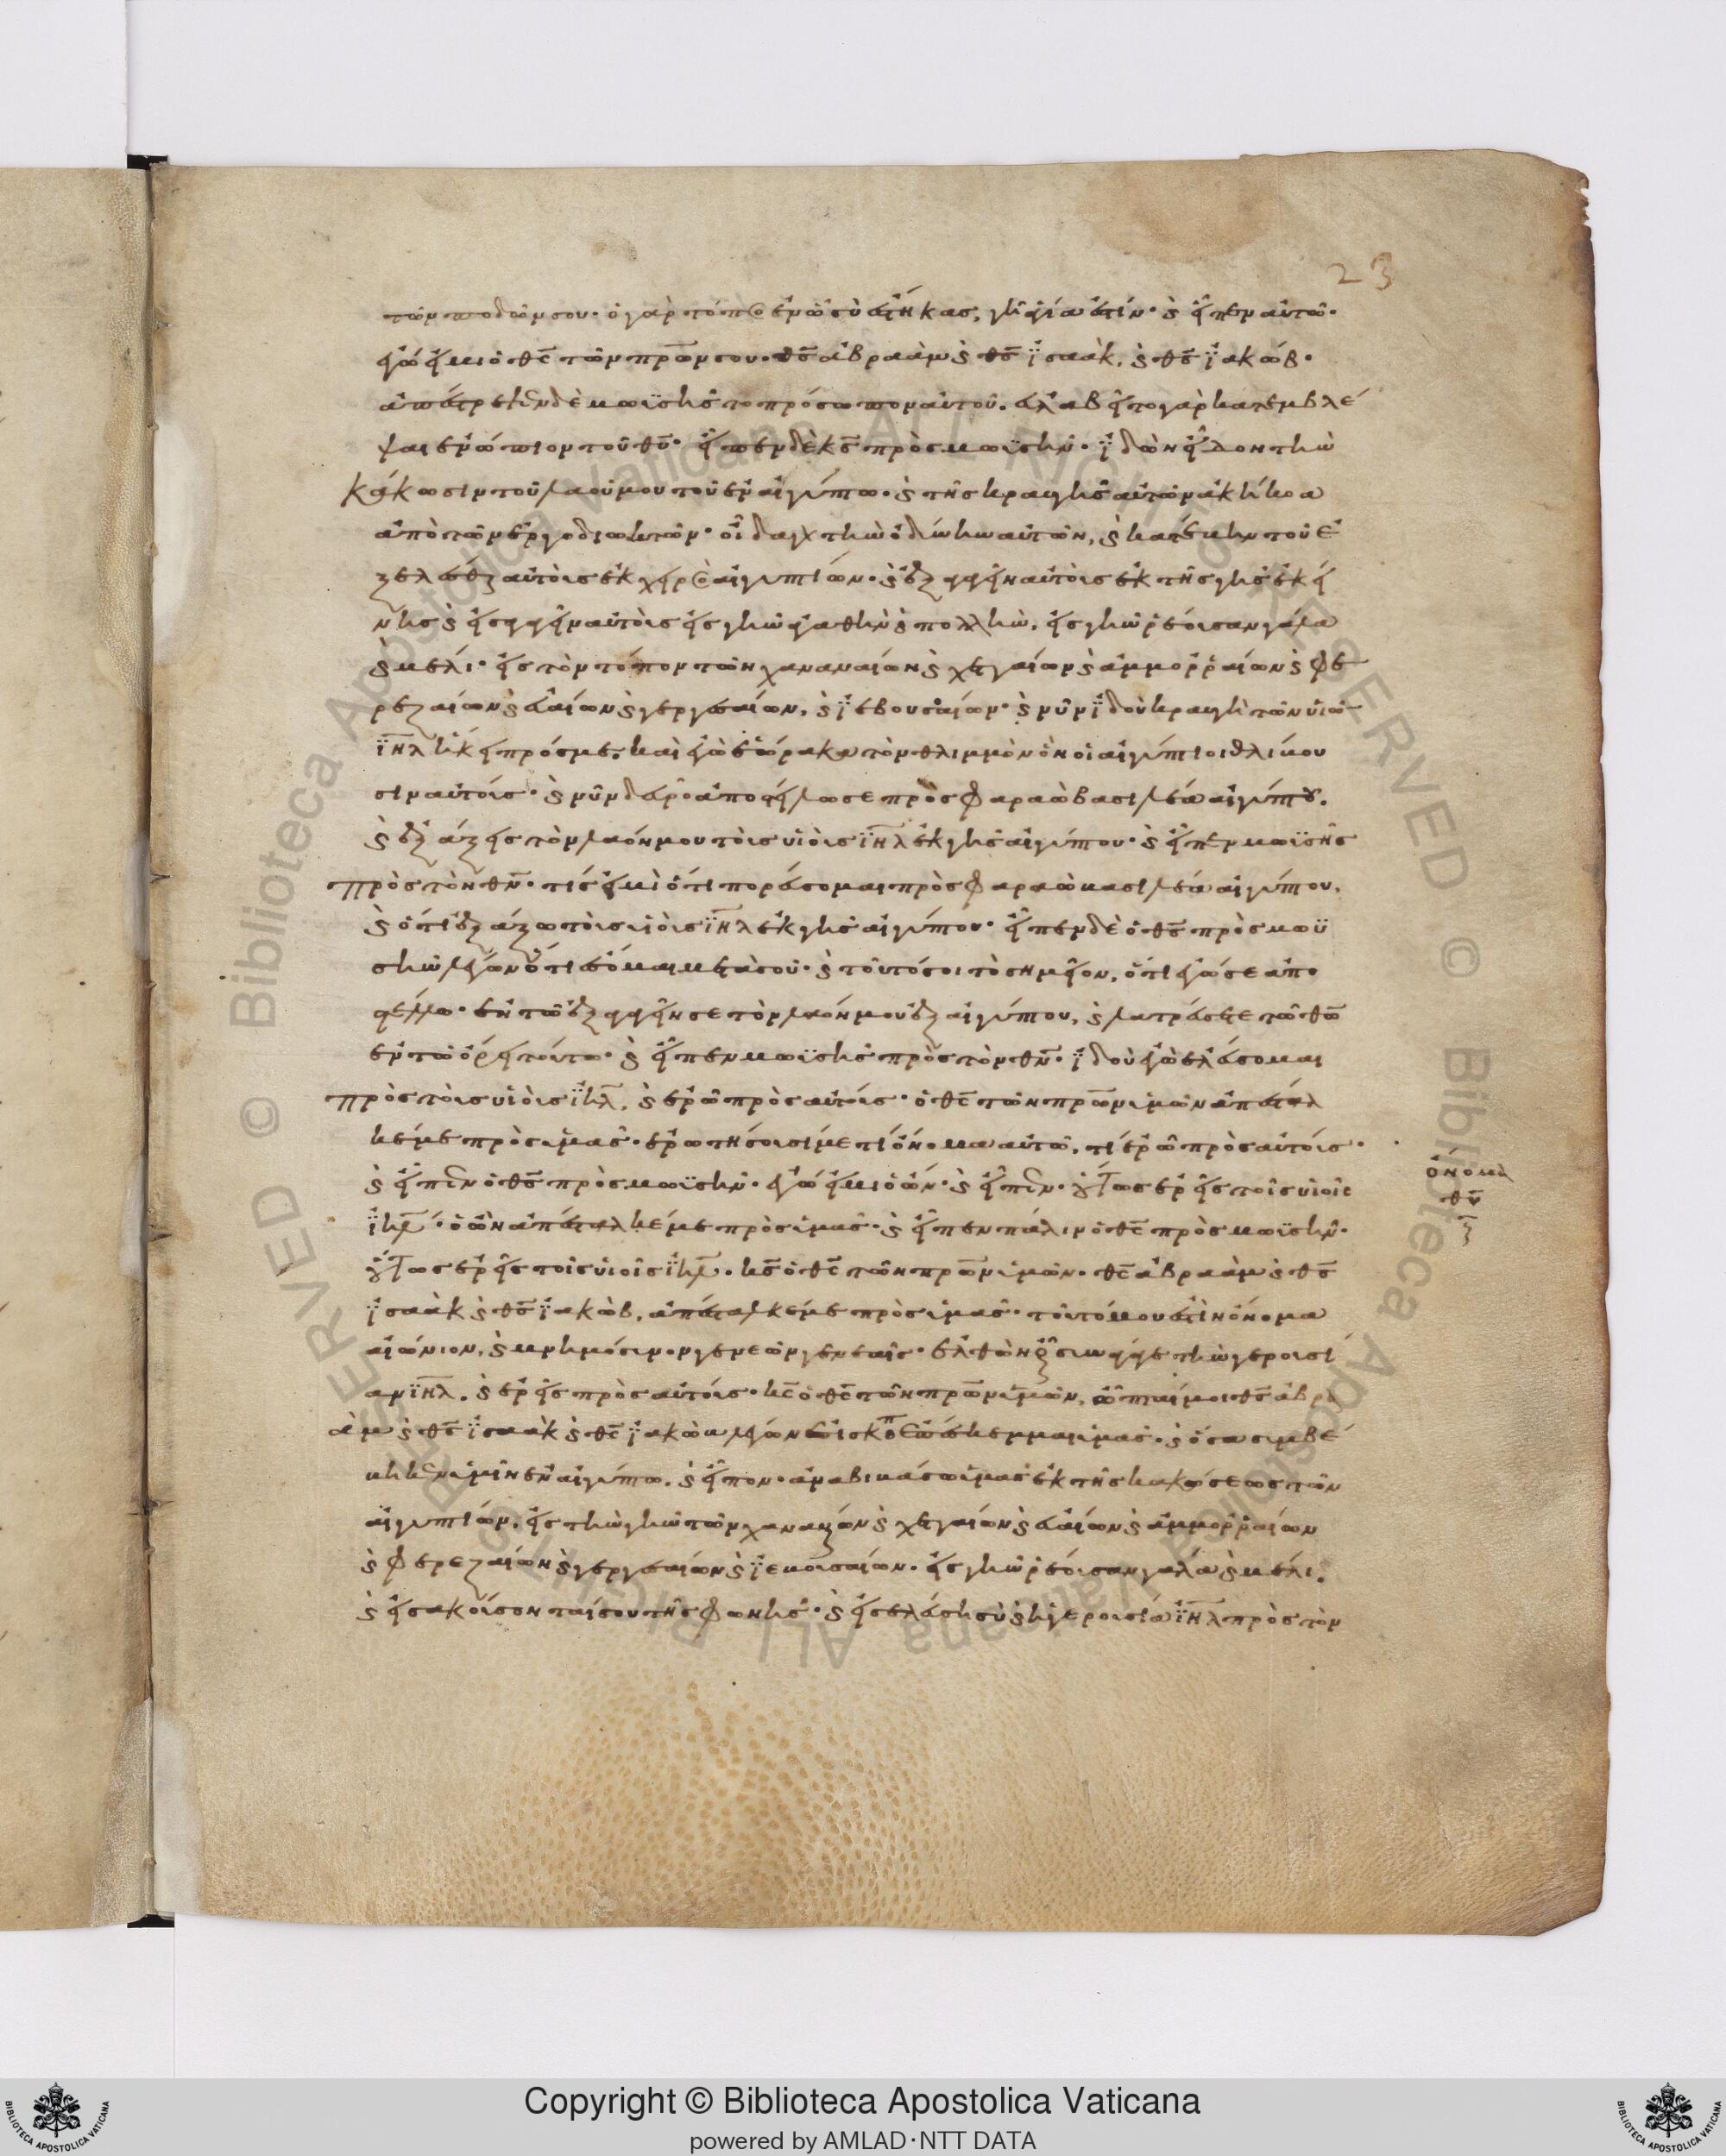 23
τῶν ποδῶν σου· ὁ γὰρ τόπος ἐν ὧ σὺ ἔστηκας, γῆ ἁγία ἐστίν· καὶ εἶπεν αὐτῶ·
ἐγώ εἰμι ὁ θ̅ς̅ τῶν πρ̅ω̅ν σου· θ̅ς̅ ἀβραὰμ καὶ θ̅ς̅ ἰσαὰκ, καὶ θ̅ς̅ ἰακώβ·
ἀπέστρεψεν δὲ μωϊσῆς τὸ πρόσωπον αὐτοῦ. εὐλαβεῖτο γὰρ κατεμβλέ
ψαι ἐνώπιον τοῦ θ̅υ̅· εἶπεν δὲ κ̅ς̅ πρὸς μωϊσῆν· ἰδὼν εἶδον τὴν
κάκωσιν τοῦ λαοῦ μου τοῦ ἐν αἰγύπτω· καὶ τῆς κραυγῆς αὐτῶν ἀκήκοα
ἀπὸ τῶν ἐργοδιωκτῶν· οἶδα γὰρ τὴν ὀδύνην αὐτῶν, καὶ κατέβην τοῦ ἐ
ξελέσθαι αὐτοὺς ἐκ χειρὸς αἰγυπτίων· καὶ ἐξαγαγεῖν αὐτοὺς ἐκ τῆς γῆς ἐκεί
νης καὶ εἰσαγαγεῖν αὐτοὺς εἰς γῆν ἀγαθὴν καὶ πολλὴν, εἰς γῆν ῥέουσαν γάλα
καὶ μέλι· εἰς τὸν τόπον τῶν χαναναίων καὶ χετταίων καὶ ἀμμορραίων καὶ φε
ρεζαίων καὶ εὐαίων καὶ γεργεσαίων, καὶ ἰεβουσαίων· καὶ νῦν ἰδοὺ κραυγὴ τῶν υἱῶν
ἰ̅η̅λ̅ ἥκει πρός με. καὶ ἐγὼ ἑώρακα τὸν θλιμμὸν ὃν οἱ αἰγύπτιοι θλίβου
σιν αὐτούς· καὶ νῦν δεῦρο ἀποστείλω σε πρὸς φαραὼ βασιλέα αἰγύπτου.
καὶ ἐξάξεις τὸν λαόν μου τοὺς υἱοὺς ἰ̅η̅λ̅ ἐκ γῆς αἰγύπτου· καὶ εἶπεν μωϊσῆς
πρὸς τὸν θ̅ν̅· τίς εἰμὶ ὅτι πορεύσομαι πρὸς φαραὼ βασιλέα αἰγύπτου,
καὶ ὅτι ἐξάξω τοὺς υἱοὺς ἰ̅η̅λ̅ ἐκ γῆς αἰγύπτου· εἶπεν δὲ ὁ θ̅ς̅ πρὸς μωϋ
σῆν λέγων ὅτι ἔσομαι μετὰ σοῦ· καὶ τοῦτό σοι τὸ σημεῖον, ὅτι ἐγώ σε ἀπο
στέλλω· ἐν τῶ ἐξαγαγεῖν σε τὸν λαόν μου ἐξ αἰγύπτου, καὶ λατρεύσετε τῶ θ̅ω̅
ἐν τῶ ὄρει τούτω· καὶ εἶπεν μωϊσῆς πρὸς τὸν θ̅ν̅· ἰδοὺ ἐγὼ ἐλεύσομαι
πρὸς τοὺς υἱοὺς ἰ̅η̅λ̅, καὶ ἐρῶ πρὸς αὐτούς· ὁ θ̅ς̅ τῶν πρ̅ω̅ν ὑμῶν ἀπέσταλ
κέ με πρὸς ὑμᾶς· ἐρωτήσουσί με τί ὄνομα αὐτῶ, τί ἐρῶ πρὸς αὐτούς·
καὶ εἶπεν ὁ θ̅ς̅ πρὸς μωϊσῆν· ἐγώ εἰμι ὁ ὤν· καὶ εἶπεν· οὕτως ἐρεῖς τοῖς υἱοῖς
ἰ̅η̅λ̅· ὁ ὢν ἀπέσταλκέ με πρὸς ὑμᾶς· καὶ εἶπεν πάλιν ὁ θ̅ς̅ πρὸς μωϊσῆν·
οὕτως ἐρεῖς τοῖς υἱοῖς ἰ̅η̅λ̅. κ̅ς̅ ὁ θ̅ς̅ τῶν πρ̅ω̅ν ὑμῶν· θ̅ς̅ ἀβραὰμ καὶ θ̅ς̅
ἰσαὰκ καὶ θ̅ς̅ ἰακὼβ, ἀπέσταλκέ με πρὸς ὑμᾶς· τοῦτό μου ἐστὶν ὄνομα
αἰώνιον, καὶ μνημόσυνον γενεῶν γενεαῖς· ἐλθὼν οὖν συνάγαγε τὴν γερουσί
αν ἰ̅η̅λ̅. καὶ ἐρεῖς πρὸς αὐτούς· κ̅ς̅ ὁ θ̅ς̅ τῶν πρ̅ω̅ν ὑμῶν, ὦπταί μοι θ̅ς̅ ἀβρα
ὰμ καὶ θ̅ς̅ ἰσαὰκ καὶ θ̅ς̅ ἰακὼβ λέγων ἐπισκοπῆ ἐπέσκεμμαι ὑμᾶς. καὶ ὅσα συμβέ
βηκεν ὑμῖν ἐν αἰγύπτω. καὶ εἶπον· ἀναβιβάσω ὑμᾶς ἐκ τῆς κακώσεως τῶν
αἰγυπτίων. εἰς τὴν γῆν τῶν χαναναίων καὶ χετταίων καὶ εὐαίων καὶ ἀμμορραίων
καὶ φερεζαίων καὶ γεργεσαίων καὶ ἰεβουσαίων. εἰς γῆν ῥέουσαν γάλα καὶ μέλι.
καὶ εἰσακούσονταί σου τῆς φωνῆς· καὶ εἰσελεύση σὺ καὶ ἡ γερουσία ἰ̅η̅λ̅ πρὸς τὸν
ὄνομα
θ̅υ̅
Copyright © Biblioteca Apostolica Vaticana
powered by AMLAD·NTT DATA